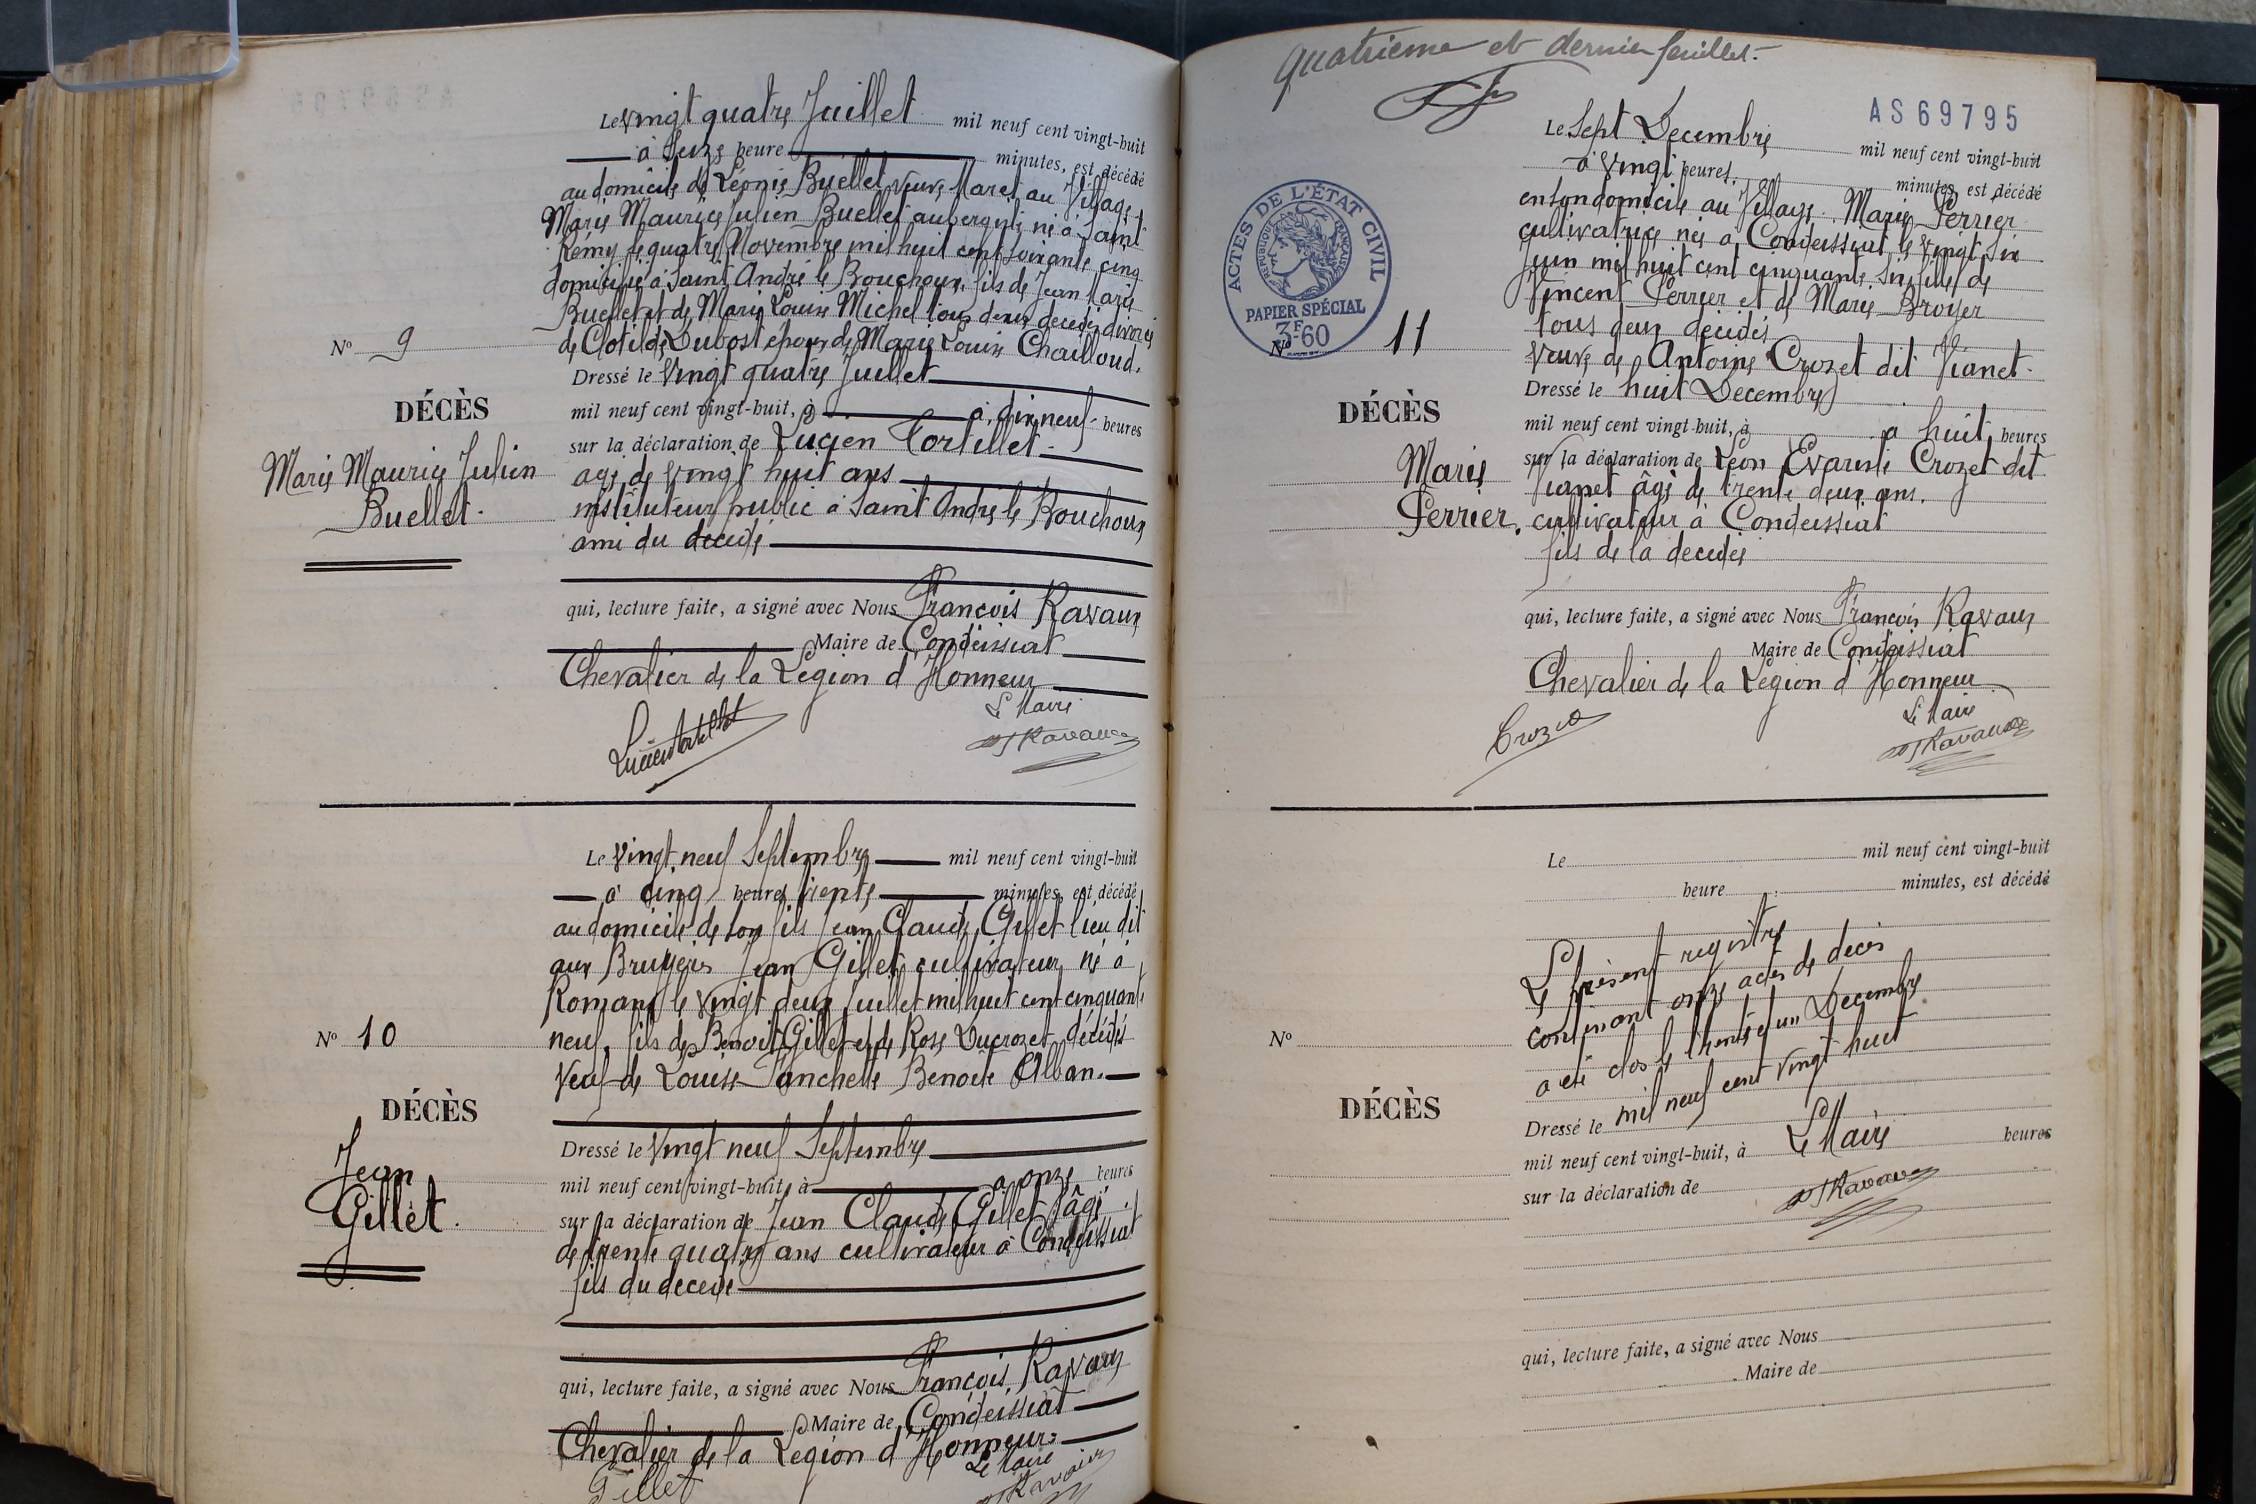 Le vingt quatre Juillet mil neuf cent vingt-huit
à seize heure minutes, est décédé
au domicile de Léonie Buellet veuve Maret au Village
Marie Maurice Julien Buellet aubergiste né à Saint
Rémy le quatre Novembre mil huit cent soixante cinq
domicilié à Saint André le Bouchoux, fils de Jean Marie
Buellet et de Marie Louise Michel tous deux décédés divorcé
de Clotilde Dubost époux de Marie Louise Chailloud.
Nº 9
DÉCÈS
Marie Maurice Julien
Buellet.
Dressé le vingt quatre Juillet
mil neuf cent vingt-huit, à à dix neuf heures
sur la déclaration de Lucien Tortillet
agé de vingt huit ans
instituteur public à Saint André le Bouchoux
ami du décédé
qui, lecture faite, a signé avec Nous François Ravaux
Maire de Condeissiat
Chevalier de la Légion d'Honneur
Le Maire
Lucien Tortillet
Ravaux
Le vingt neuf Septembre mil neuf cent vingt-huit
à cinq heures trente minutes, est décédé
au domicile de son fils Jean Claude Gillet lieu dit
aux Bruyères Jean Gillet cultivateur né à
Romans le vingt deux Juillet mil huit cent cinquante
neuf, fils de Benoit Gillet et de Rose Ducrozet décédés
Veuf de Louise Panchette Benoite Alban.
Nº 10
DÉCÈS
Jean
Gillet.
Dressé le vingt neuf Septembre
mil neuf cent vingt-huit, à à onze heures
sur la déclaration de Jean Claude Gillet âgé
de trente quatre ans cultivateur à Condeissiat
fils du décédé
qui, lecture faite, a signé avec Nous François Ravaux
Maire de Condeissiat
Chevalier de la Légion d'Honneur
Le Maire
Gillet
Ravaux
Quatrième et dernier feuillet.
AS69795
ACTES DE L'ÉTAT CIVIL
RÉPUBLIQUE FRANÇAISE
PAPIER SPÉCIAL
3F60
Le Sept Décembre mil neuf cent vingt-huit
à vingt heures minutes, est décédé
en son domicile au Village Marie Perrier
cultivatrice née à Condeissiat le vingt six
Juin mil huit cent cinquante six fille de
Vincent Perrier et de Marie Broyer
tous deux décédés
veuve de Antoine Crozet dit Vianet.
Nº 11
DÉCÈS
Marie
Perrier.
Dressé le huit Décembre
mil neuf cent vingt-huit, à à huit heures
sur la déclaration de Léon Evariste Crozet dit
Vianet âgé de trente deux ans.
cultivateur à Condeissiat
fils de la décédée
qui, lecture faite, a signé avec Nous François Ravaux
Maire de Condeissiat
Chevalier de la Légion d'Honneur
Le Maire
Crozet
Ravaux
Le mil neuf cent vingt-huit
heure minutes, est décédé
Le présent registre
contenant onze actes de décès
a été clos le trente et un Décembre
mil neuf cent vingt huit
Le Maire
Ravaux
Nº
DÉCÈS
Dressé le
mil neuf cent vingt-huit, à heures
sur la déclaration de
qui, lecture faite, a signé avec Nous
Maire de